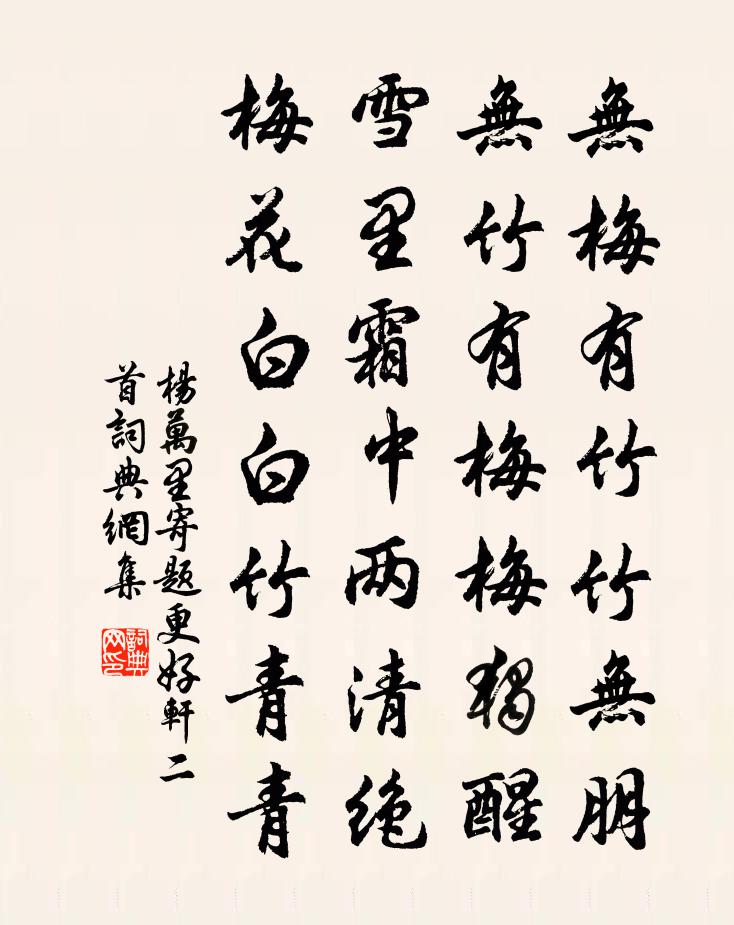 無梅有竹竹無朋
無竹有梅梅獨醒
雪里霜中两清絶
梅花白白竹青青
楊萬里寄題更好軒二
首詞典網集
詞典
网印